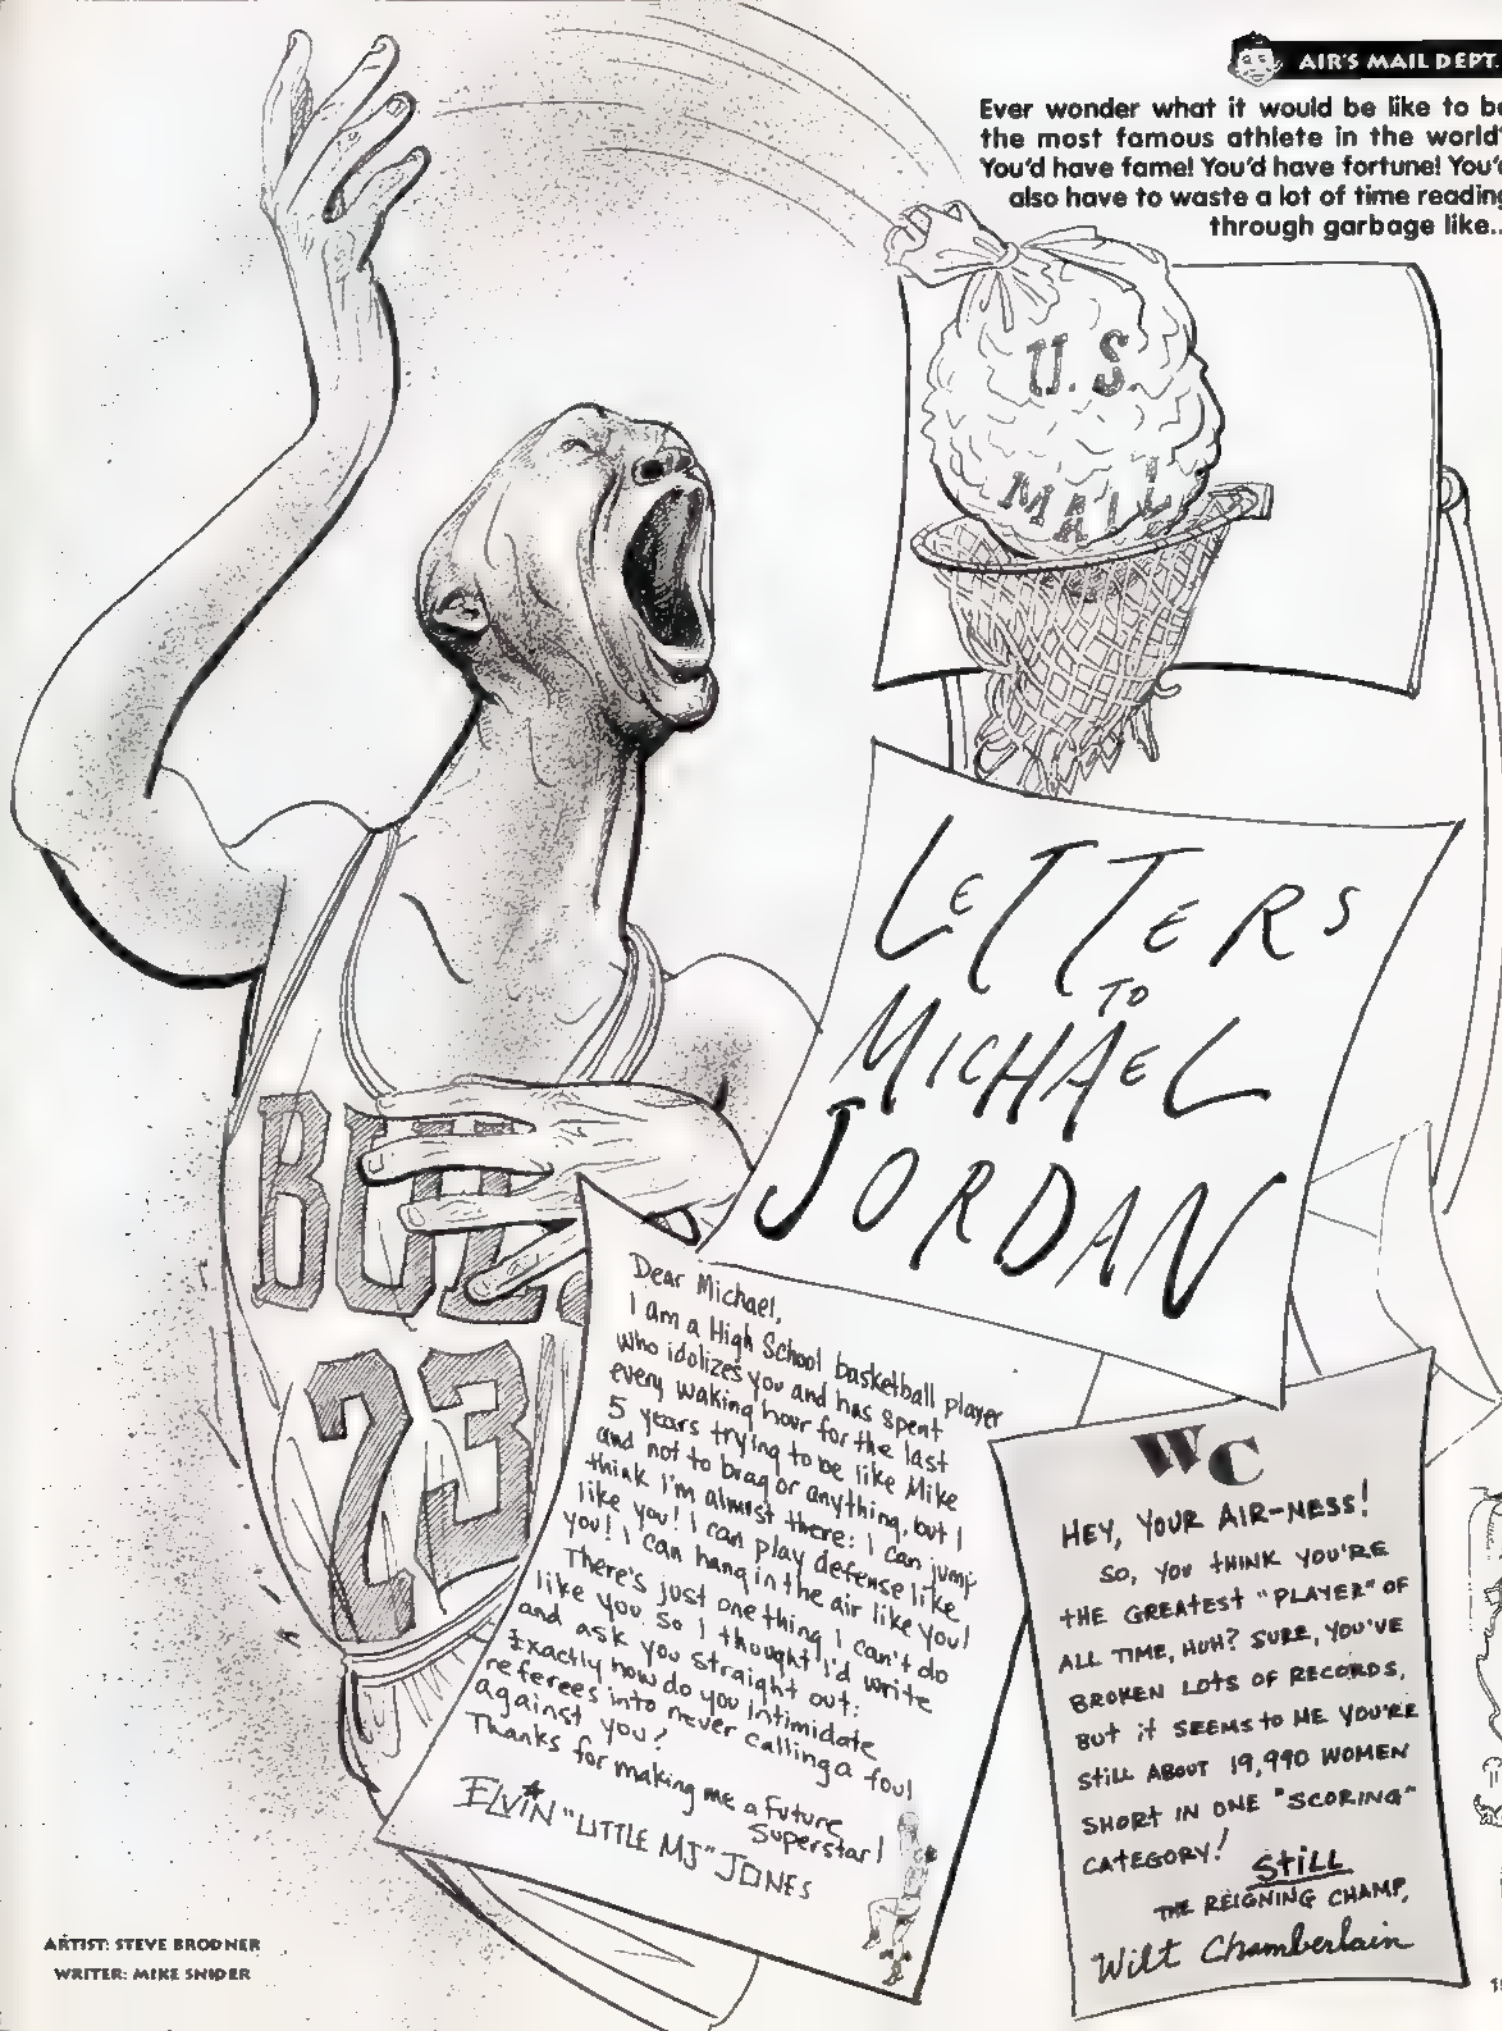 AIR'S MAIL DEPT.
Ever wonder what it would be like to be
the most famous athlete in the world?
You'd have fame! You'd have fortune! You'd
also have to waste a lot of time reading
through garbage like..
U.S.
MAIL
LETTERS
TO
MICHAEL
JORDAN
BULLS
23
Dear Michael,
I am a High School basketball player
who idolizes you and has spent
every waking hour for the last
5 years trying to be like Mike
and not to brag or anything, but I
think I'm almost there: I can jump
like you! I can play defense like
you! I can hang in the air like you!
There's just one thing I can't do
like you so I thought I'd write
and ask you straight out:
Exactly how do you intimidate
referees into never calling a foul
against you?
Thanks for making me a future
Superstar!
ELVIN "LITTLE MJ" JONES
WC
HEY, YOUR AIR-NESS!
SO, YOU THINK YOU'RE
THE GREATEST "PLAYER" OF
ALL TIME, HUH? SURE, YOU'VE
BROKEN LOTS OF RECORDS,
BUT IT SEEMS TO ME YOU'RE
STILL ABOUT 19,990 WOMEN
SHORT IN ONE "SCORING"
CATEGORY!
STILL
THE REIGNING CHAMP,
Wilt Chamberlain
ARTIST: STEVE BRODNER
WRITER: MIKE SNIDER